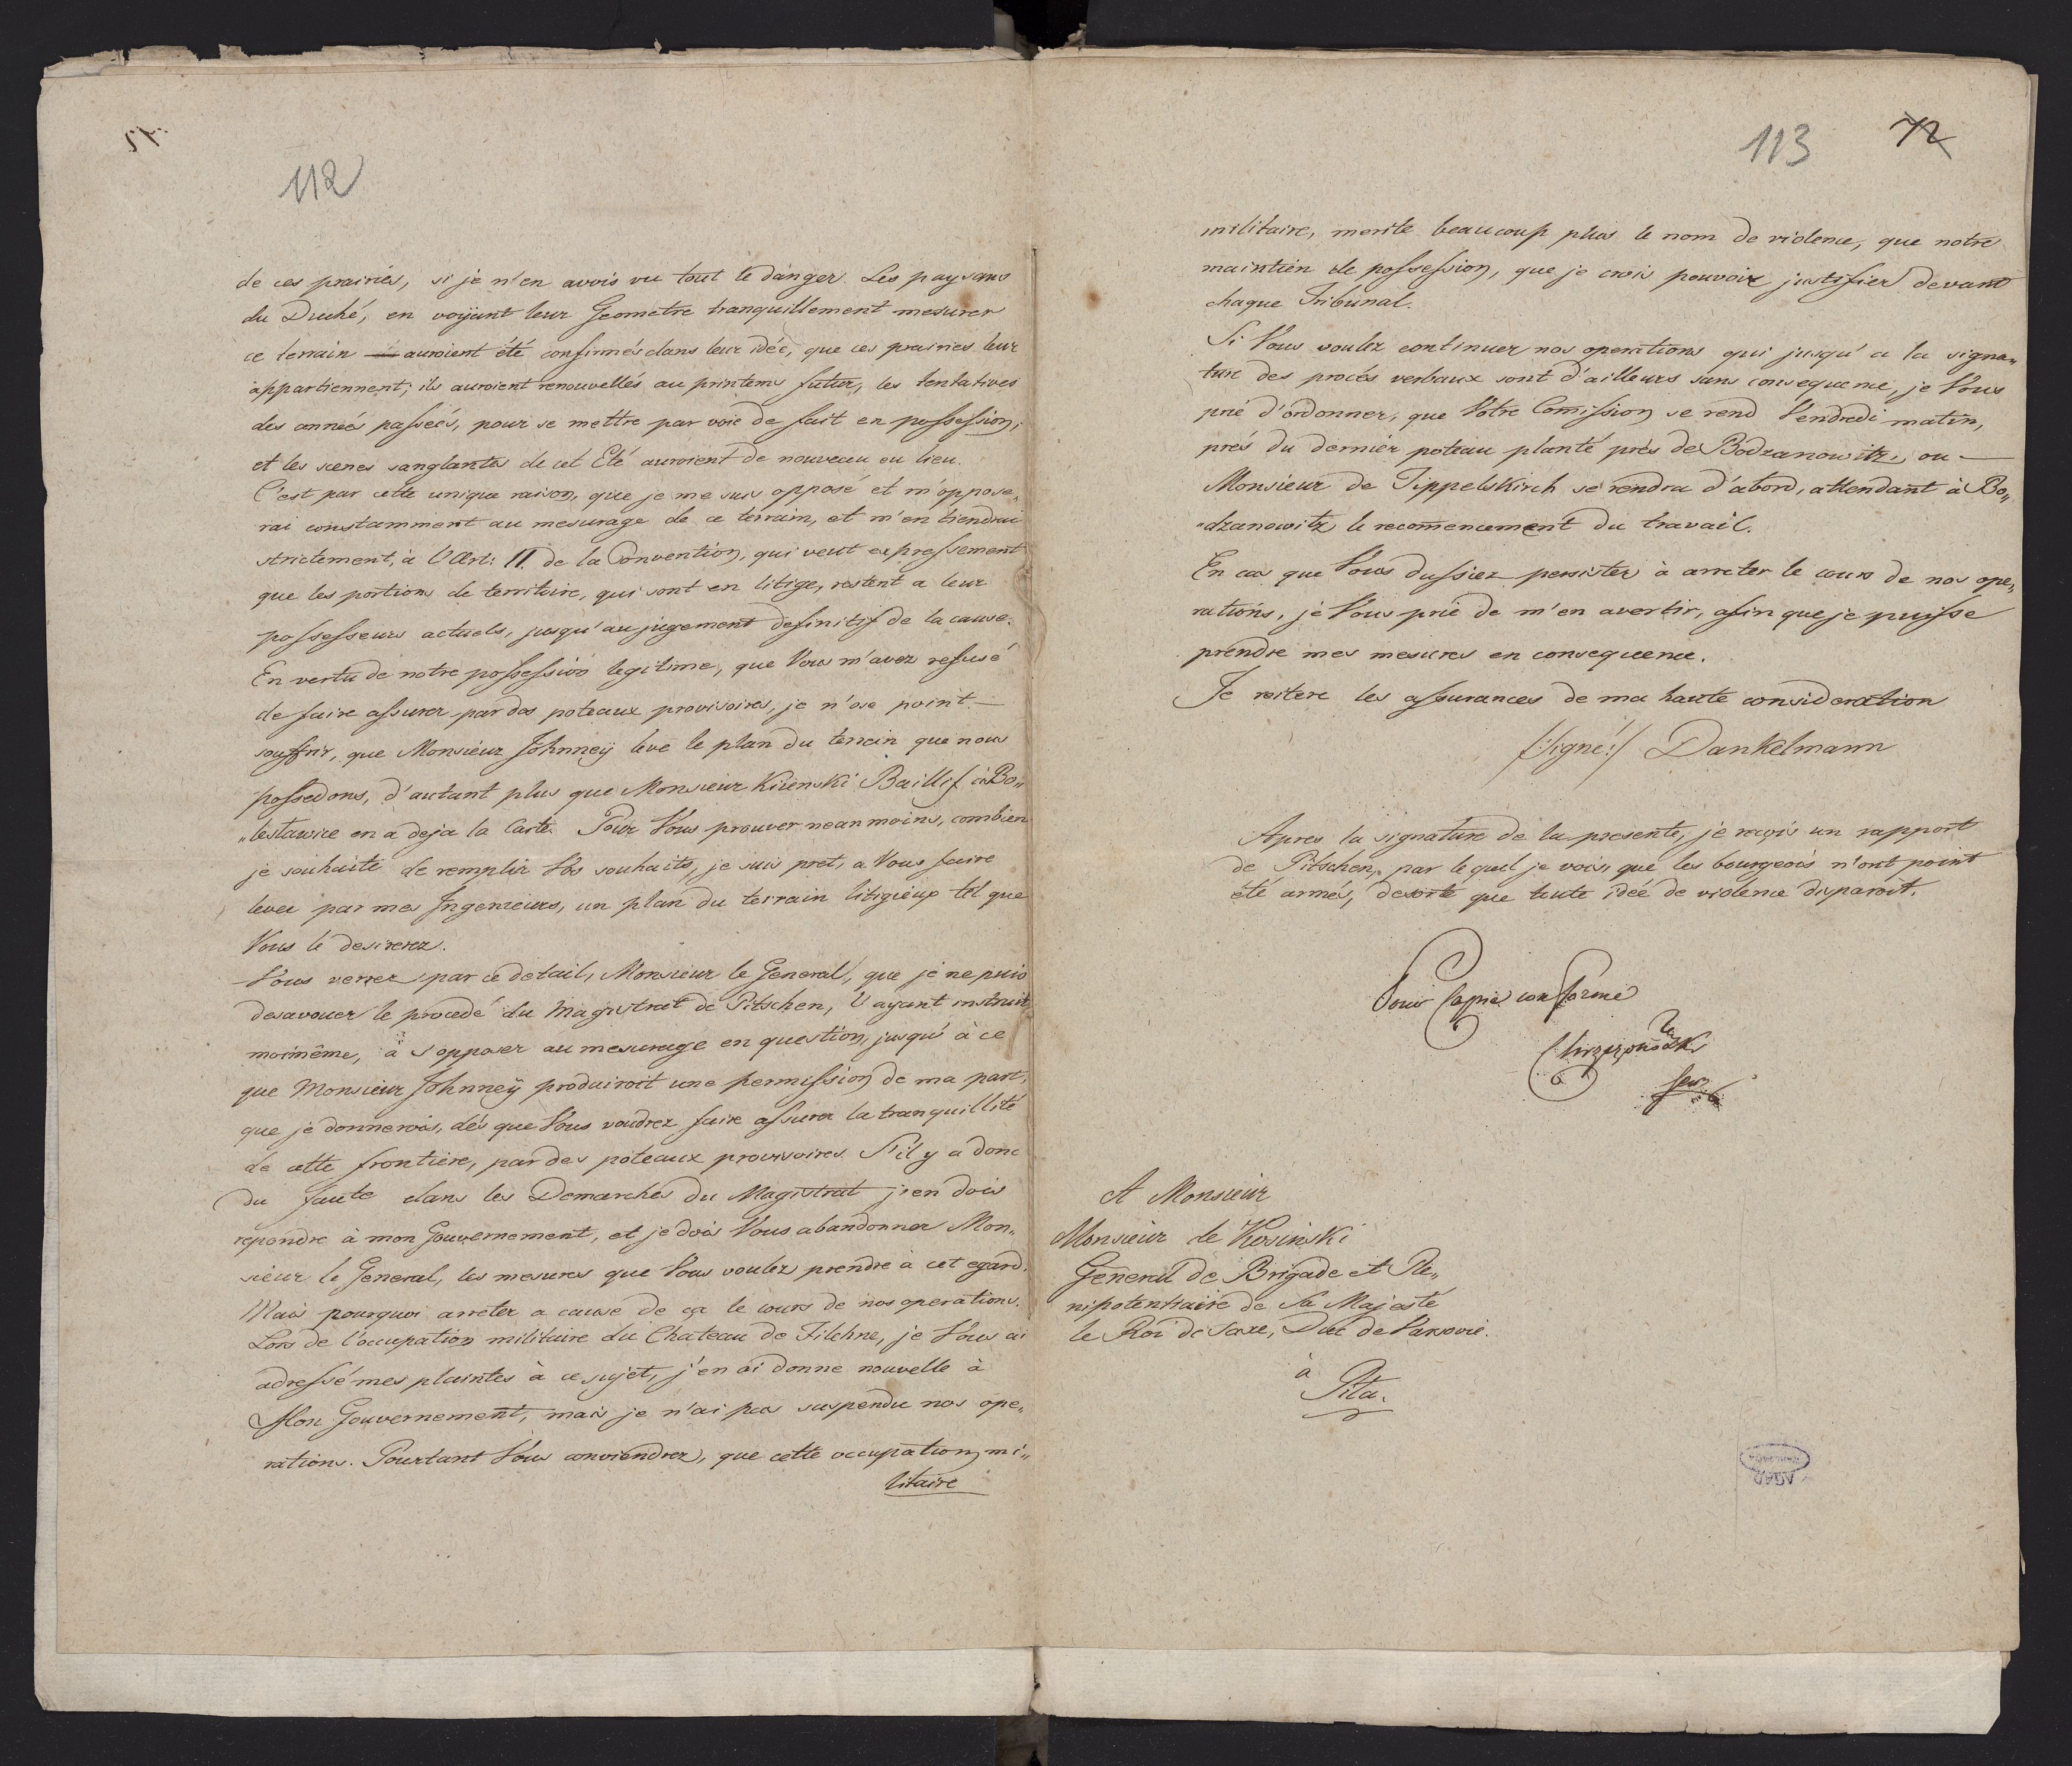 112
de ces prairiés, si je n'en avois vu tout le danger. Les paysans
du Duché, en voyant leur Geometre tranquillement mesurer
ce terrain auroient été confirmés dans leur idée, que ces prairies leur
appartiennent; ils auroient renouvellés au printems futur, les tentatives
des année passées, pour se mettre par voie de fait en possession,
et les scenes sanglantes de cet Eté auroient de nouveau eu lieu.
C'est par cette unique raison, que je me suis opposé et m'oppose„
rai constamment au mesurage de ce terrain, et m'en tiendrai
strictement, à l'Art: II de la Convention, qui veut expressement
que les portions de territoire, qui sont en litige, restent a leur
possesseurs actuels, jusqu'au jugement definitif de la cause.
En vertu de notre possession legitime, que Vous m'avez refusé
de faire assurer par des poteaux provisoires, je n'ose point —
souffrir, que Monsieur Johnneÿ leve le plan du terrein que nous
possedons, d'autant plus que Monsieur Kirenski Baillif à Bo„
„lestawice en a deja la Carte. Pour Vous prouver neanmoins, combien
je souhaite de remplir Vos souhaits, je suis pret, a Vous faire
lever par mes Ingenieurs, un plan du terrain litigieux tel que
Vous le desirerez.
Vous verrez par ce detail, Monsieur le General, que je ne puis
desavouer le procedé du Magistrat de Pitschen, l'ayant instruit
moimême, à s'opposer au mesurage en question, jusqu'à ce
que Monsieur Johnneÿ produiroit une permission de ma part,
que je donnerois, dés que Vous voudrez faire assurer la tranquillité
de cette frontière, par des poteaux provisoires. S'il y a donc
du faute dans les Demarches du Magistrat j'en dois
repondre à mon Gouvernement, et je dois Vous abandonner Mon„
sieur le General, les mesures que Vous voulez prendre à cet egard.
Mais pourquoi arreter a cause de ça le cours de nos operations.
Lors de l'occupation militaire du Chateau de Filehne, je Vous ai
adressé mes plaintes à ce sujet, j'en ai donne nouvelle à
Mon Gouvernement, mais je n'ai pas suspendu nos ope„
rations. Pourtant Vous conviendrez, que cette occupation mi„
litaire
113 72
militaire, merite beaucoup plus le nom de violence, que notre
maintien de possession, que je crois pouvoir justifier devant
chaque Tribunal.
Si Vous voulez continuer nos operations qui jusqu'a la signa„
ture des procés verbaux sont d'ailleurs sans consequence, je Vous
prie d'ordonner, que Votre Comission se rend Vendredi matin,
prés du dernier poteau planté près de Bodzanowitz, ou —
Monsieur de Tippelskirch se rendra d'abord, attendant à Bo„
„dzanowitz le recommencement du travail.
En cas que Vous dussiez persister à arreter le cours de nos ope„
rations, je Vous prie de m'en avertir, afin que je puisse
prendre mes mesures en consequence.
Je reitere les assurances de ma haute consideration
/:signé:/ Dankelmann
Apres la signature de la presente, je reçois un rapport
de Pitschen, par le quel je vois, que les bourgeois n'ont point
été armés, desorte que toute idée de violence disparoit.
Pour Copie conforme
A Monsieur
Monsieur de Kosinski
General de Brigade et Ple„
nipotentiaire de Sa Majesté
le Roi de Saxe, Duc de Varsovie.
à
Pila.
AGAD